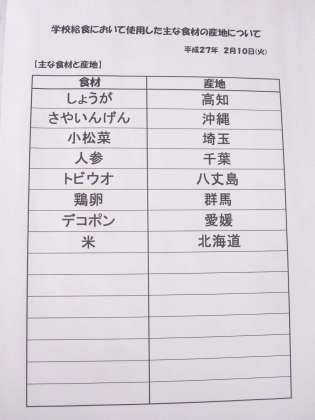 学校給食において使用した主な食材の産地について
平成27年 2月10日(火)
【主な食材と産地】
食材 産地
しょうが 高知
さやいんげん 沖縄
小松菜 埼玉
人参 千葉
トビウオ 八丈島
鶏卵 群馬
デコポン 愛媛
米 北海道